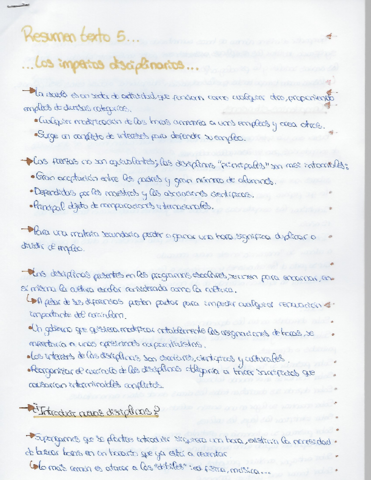 Resumen texto 5...
...Los imperios disciplinarios...
La escuela es un sector de actividad que funciona como cualquier otro, proporcionando
empleos de diversas categorías.
• Cualquier modificación de las horas amenaza a unos empleos y crea otros.
• Surge un conflicto de intereses para defender su empleo.
Las fuerzas no son equivalentes y las disciplinas "principales" son más
• Gran aceptación entre los padres y gran número de alumnos.
• Defendidas por los maestros y las asociaciones científicas.
• Principal objeto de comparaciones internacionales.
Para una materia secundaria perder o ganar una hora significa duplicar o
dividir el empleo.
Las disciplinas presentes en los programas escolares, sirven para encarnar, en
sí mismo la cultura escolar considerada como la cultura.
A pesar de las diferencias pueden pactar para impedir cualquier renovación
importante del currículum.
• Un gobierno que quisiera modificar las asignaciones de horas, se
enfrentaría a unas corporativistas.
• Los intereses de las disciplinas son científicas y culturales.
• Reorganizar el currículo de las disciplinas obligaría a tomar
que
causarían interminables conflictos.
¿Introducir nuevas disciplinas?
Supongamos que se plantea introducir una hora, existiría la necesidad
de buscar horas en un horario que ya está a
Lo más común es atacar a las "débiles": ed física, música...